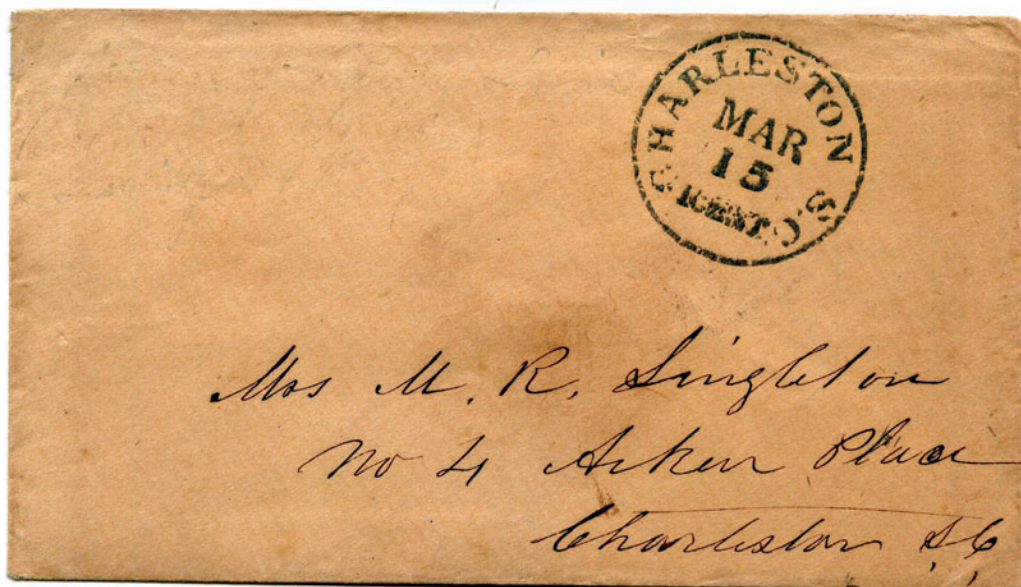 CHARLESTON S.C.
MAR
15
1 CENT
Mrs M. R. Singleton
No 4 Aiken Place
Charleston S.C